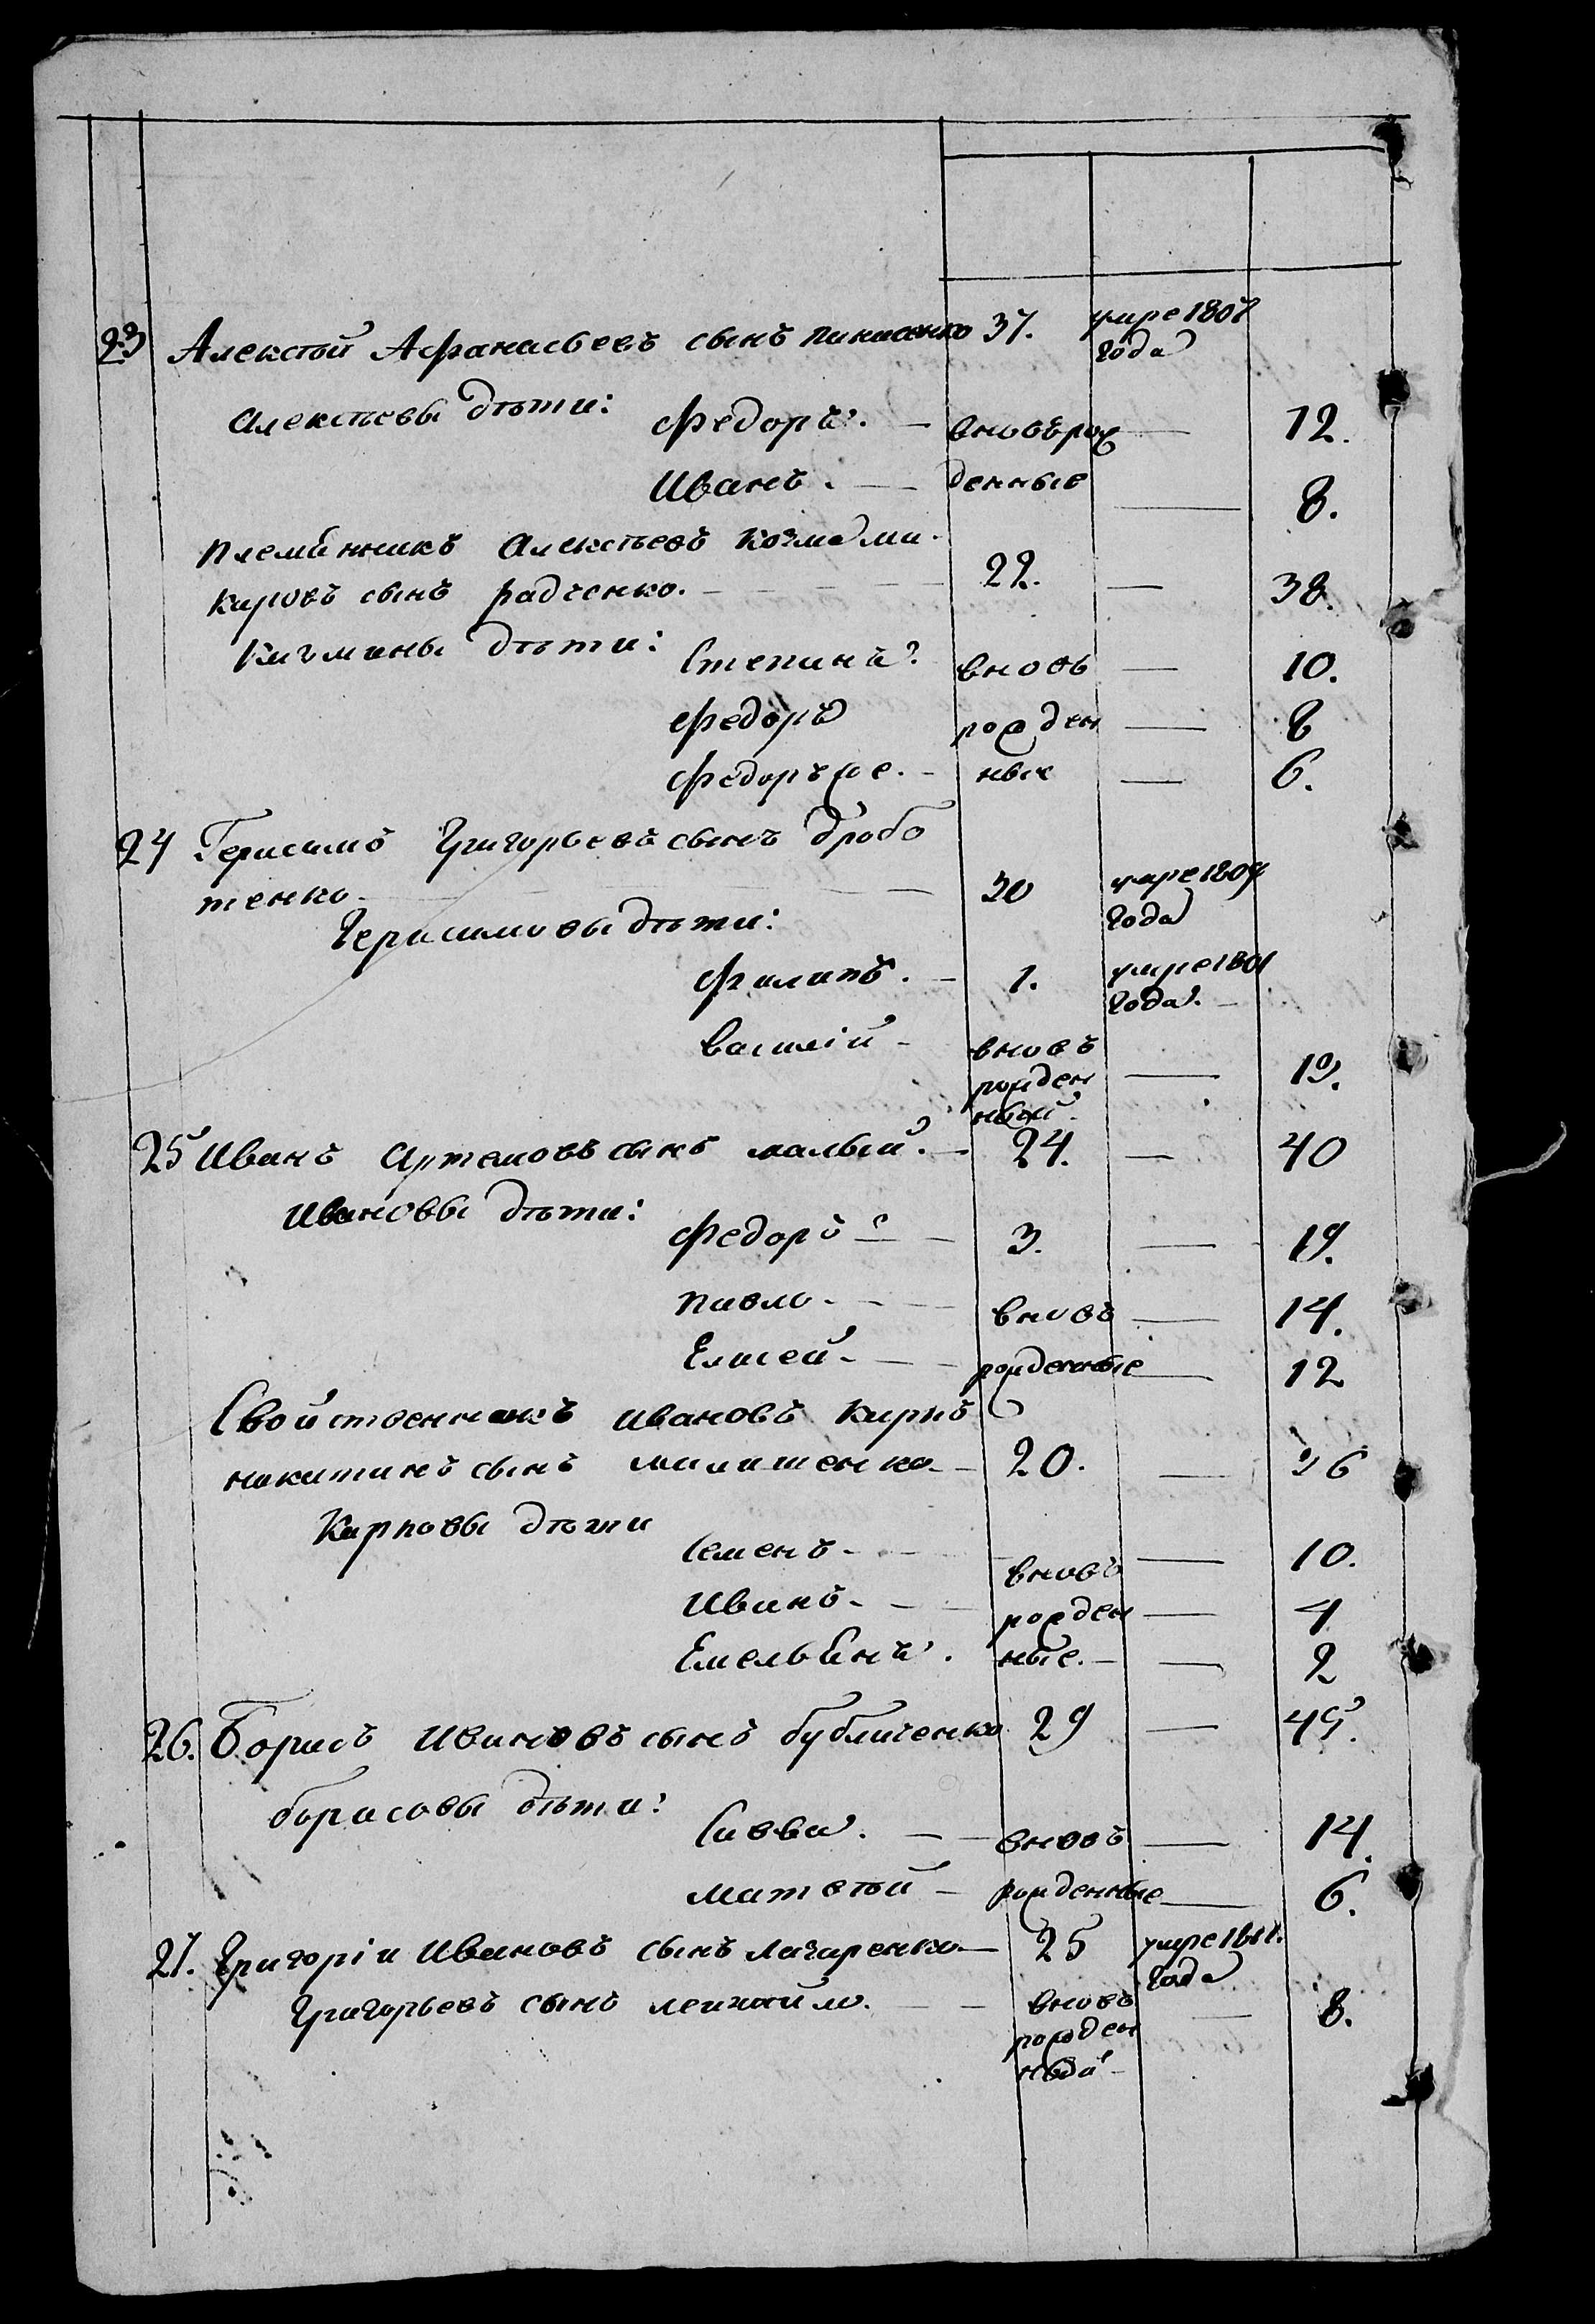 23 Алексѣй Афанасьевъ сынъ 37. умре 1807
года
Алексѣевы дѣти: Федоръ. — вновь рож — 12.
Иванъ. — денные — 8.
племянникъ Алексѣевъ Козма ма-
каровъ сынъ радченко. — 22. — 38.
Кузмины дѣти: Степанъ. вновь — 10.
Федоръ рожден — 8
Федоръ же. — ные — 6.
24 Герасимъ Григорьевъ сынъ дробо
тенко — 30 умре 1809
года
Герасимовы дѣти:
Филипъ. — 1. умре 1801
года. —
Василій — вновь
рожден — 19.
ный —
25 Иванъ Артемовъ сынъ малый. — 24. — 40
Ивановы дѣти:
Федоръ — 3. — 19.
павло — вновь — 14.
Елисей — рожденные — 12
Свойственникъ Ивановъ Карпъ
никитинъ сынъ — 20. — 36
Карповы дѣти
Семенъ — вновь — 10.
Иванъ — рожден — 4
Емельянъ. ные. — 2
26. Борисъ Ивановъ сынъ бубличенко 29 — 45.
борисовы дѣти:
Савва. — вновь — 14.
матвѣй — рожденные — 6.
27. Григорій Ивановъ сынъ — 25 умре 1811.
года
Григорьевъ сынъ михайло. — вновь — 8.
рожден
ный —